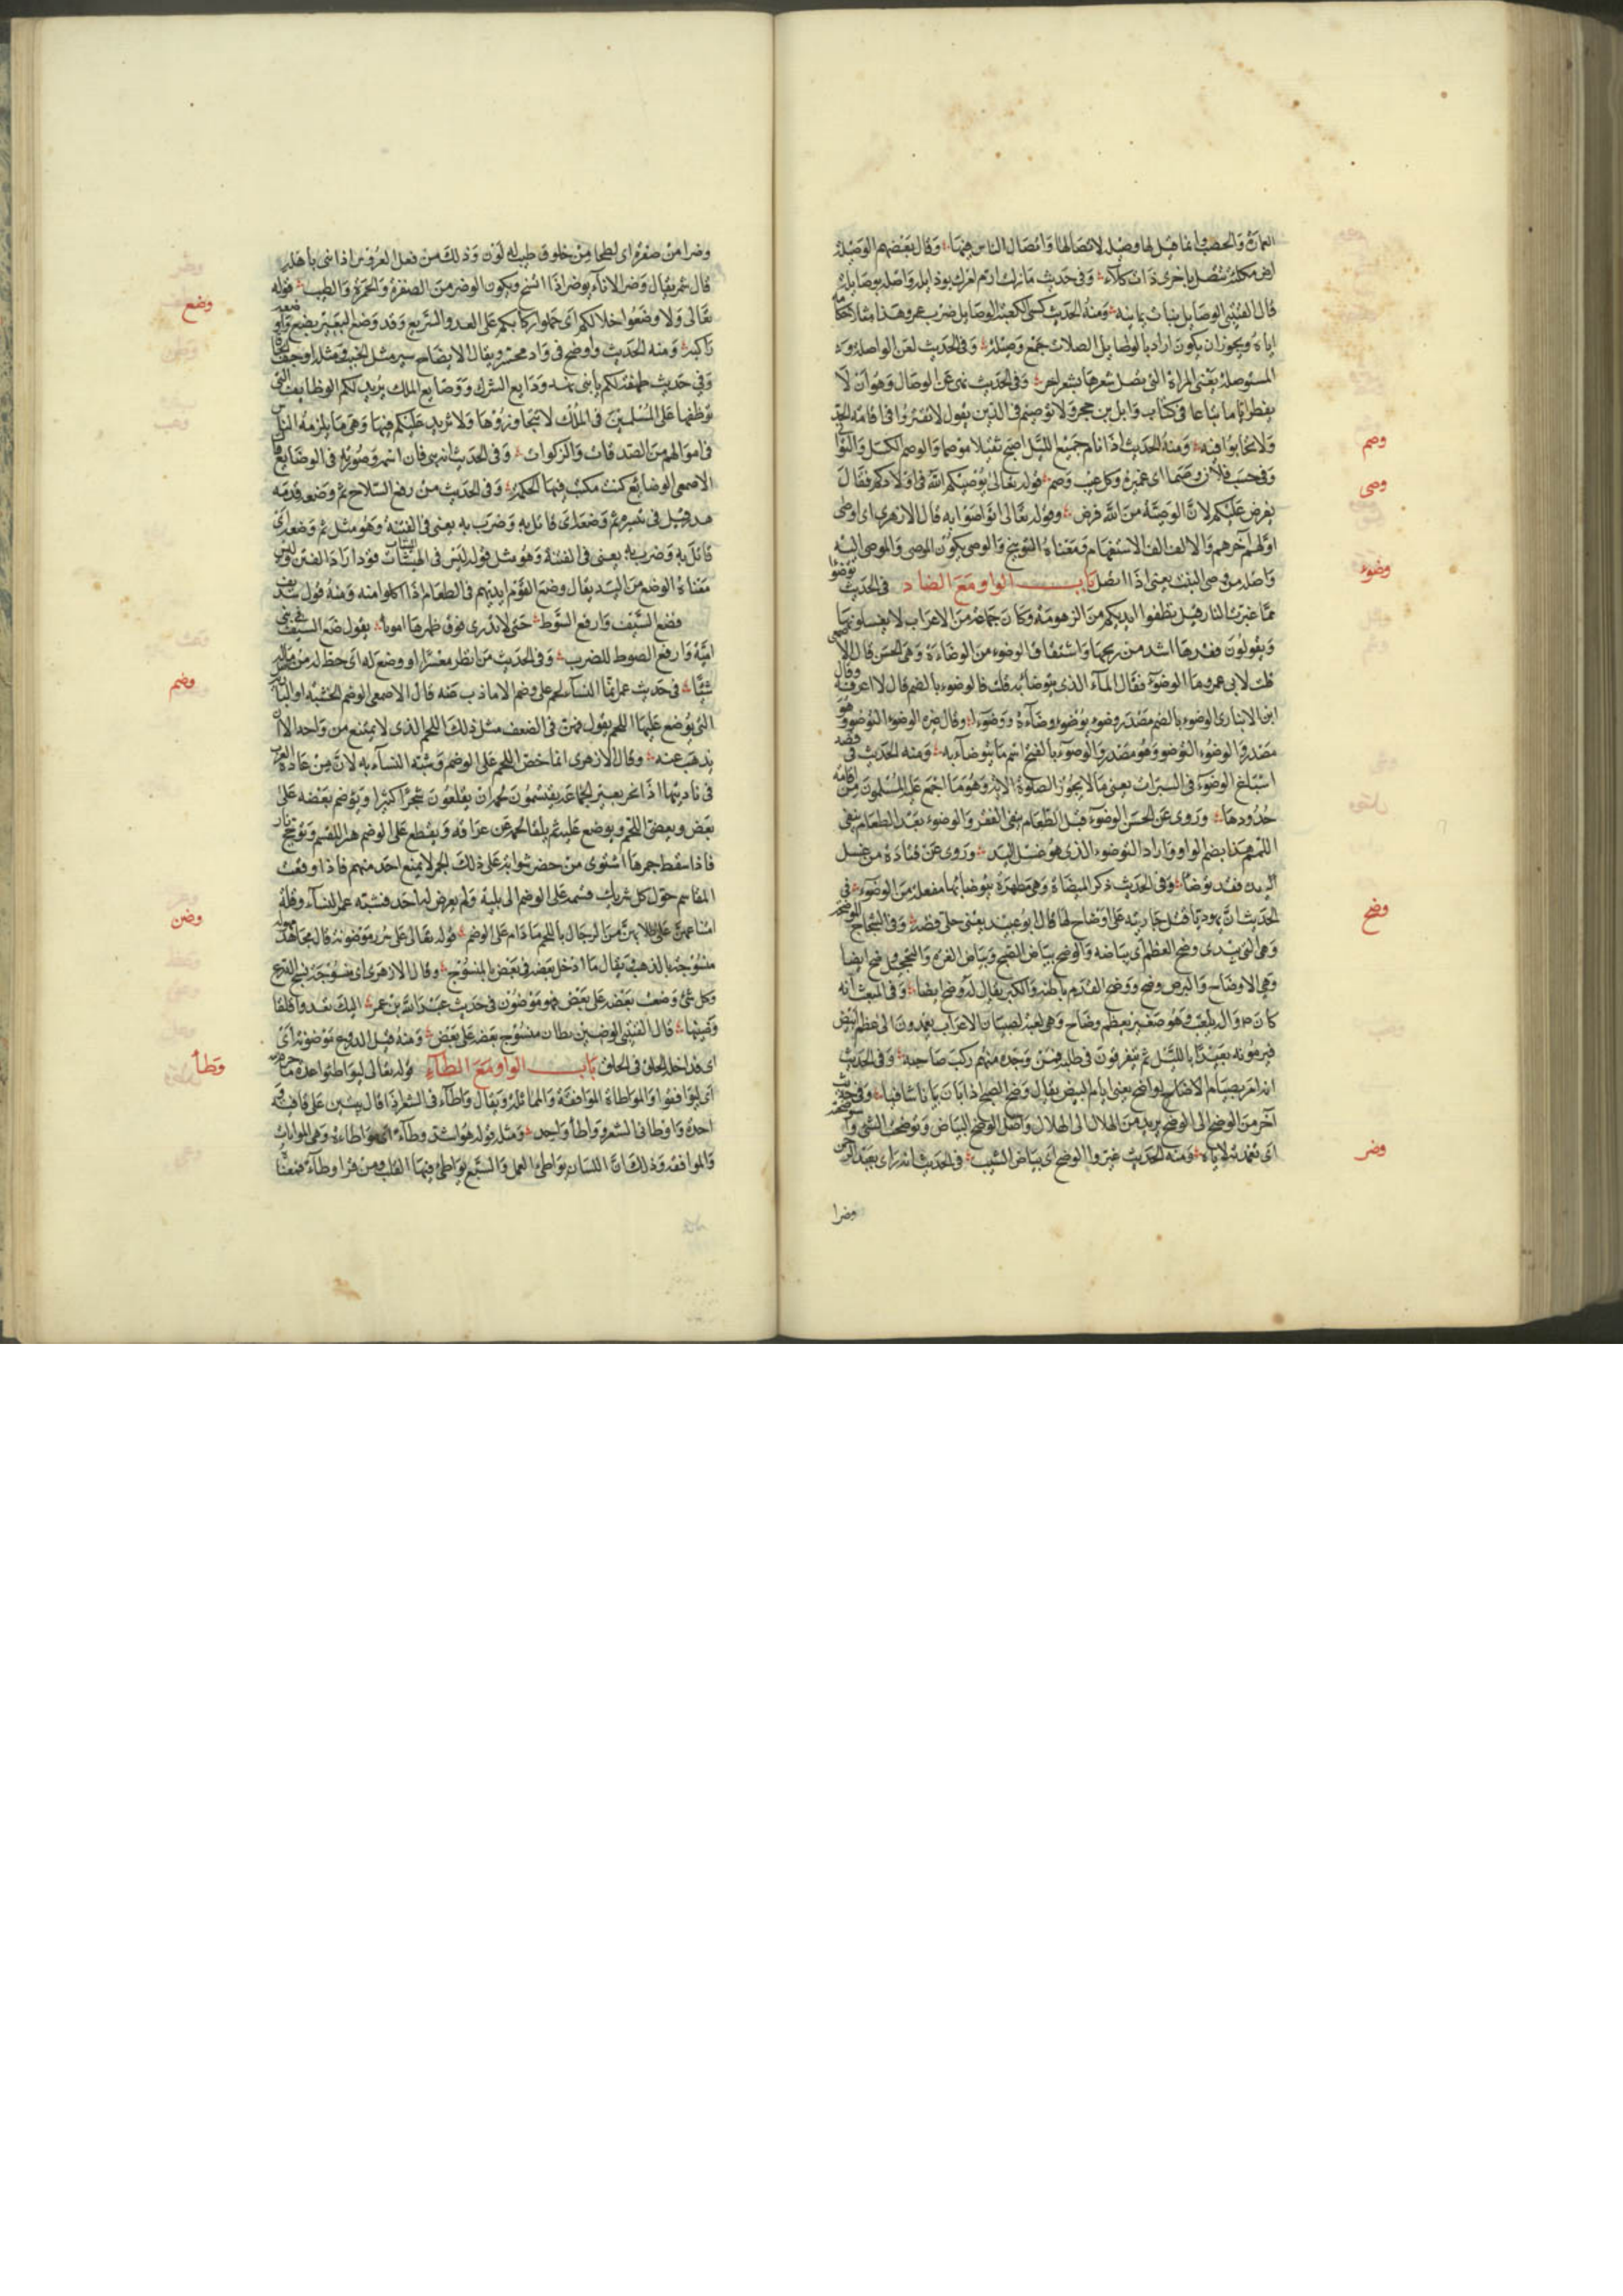 العمارة والخصب وانما قيل لها وصيله لاتصالها واتصال الناس فيها وقال بعضهم الوصيلة
ارض مكلئة تتصل باخرى ذات كلاء وفى حديث مازلت ارم امرك بوذايله واصله بوصايله
قال القتيبى الوصايل ثياب يمانية ومنه الحديث كسى الكعبة الوصايل ضرب عمرو هذا مثلا
اياه ويجوز ان يكون اراد بالوصايل الصلات جمع وصيلة وفى الحديث لعن الواصلة و
المستوصلة يعنى المراة التى تصل شعرها بشعر اخر وفى الحديث نهى عن الوصال وهو ان لا
يفطر اياما تباعا فى كتاب وايل بن حجر ولا توصيم فى الدين يقول لا تفتروا فى اقامة
ولا تحابوا فيه ومنه الحديث اذا نام جميع الليل اصبح ثقيلا موصما والوصم الكسل والتوانى
وفى حسب فلان وصمة اى غميزة وكل عيب وصم قوله تعالى يوصيكم الله فى اولادكم فقال
يفرض عليكم لان الوصية من الله فرض وقوله تعالى اتواصوا به قال الازهرى اى اوصى
اولهم آخرهم والالف الف الاستفهام ومعناه التوبيخ والوصى يكون الموصى والموصى اليه
واصله من وصى النبت يعنى اذا اتصل باب الواو مع الضاد فى الحديث توضؤا
مما غيرت النار قيل نظفوا ايديكم من الزهومة وكان جماعة من الاعراب لا يغسلونها
ويقولون فقدها اشد من ريحها واشتقاق الوضوء من الوضاءة وهى الحسن قال
قلت لابى عمرو ما الوضوء فقال المآء الذى يتوضا به قلت فالوضوء بالضم قال لا اعرفه وقال
ابن الانبارى الوضوء بالضم مصدر وضوء يوضوء وضآءة ووضوءا وقال غيره الوضوء التوضوء وهو
مصدر والوضوء التوضو وهو مصدر والوضوء بالفتح اسم ما يتوضاء به ومنه الحديث فى
اسباغ الوضوء فى السبرات يعنى ما لا يجوز الصلوة الا به وهو ما اجتمع عليه المسلمون من اقامة
حدودها وروى عن الحسن الوضوء قبل الطعام ينفى الفقر والوضوء بعد الطعام ينفى
اللمم هذا بضم الواو واراد التوضوء الذى هو غسل اليد وروى عن قتادة من غسل
اليد فقد توضا وفى الحديث ذكر الميضاة وهى مطهرة يتوضا بها مفعلة من الوضوء فى
الحديث ان يهوديا قتل جارية على اوضاح لها قال ابو عبيد يعنى حلى فضة وفى الشجاج الموضحة
وهى التى تبدى وضح العظم اى بياضه والوضح بياض الصبح وبياض الغرة والتحجيل وضح ايضا
وهى الاوضاح والبرص وضح ووضح القدم باطنه والكبر يقال له وضح ايضا وفى المبعث انه
كان يلعب وهو صغير بعظم وضاح وهى لعبة لصبيان الاعراب يعمدون الى عظم ابيض
فيرمونه بعيدا بالليل ثم يتفرقون فى طلبه فمن وجده منهم ركب صاحبه وفى الحديث
انه امر بصيام الاضاح يعنى ايام البيض يقال وضح الصبح اذا بان وفى حديث
آخر من الوضح الى الوضح يريد من الهلال الى الهلال واصل الوضح البياض
ومنه الحديث غيروا الوضح اى بياض الشيب فى الحديث انه راى بعبد الرحمن
وضرا
وصم
وصى
وضوء
وضح
وضر
وضرا من صفرة اى لطخا من خلوق طيب له لون وذلك من فعل العروس اذا بنى باهله
قال شمر يقال وضر الاناء يوضر اذا اتسخ ويكون الوضر من الصفرة والحمرة والطيب قوله
تعالى ولا وضعوا خلالكم اى حملوا ركابكم على العدو السريع وقد وضع البعير يضع
راكبه ومنه الحديث واوضع فى وادى محسر ويقال الايضاع سير مثل الخبب ومثله
وفى حديث طهفة لكم يا بنى نهد ودايع الشرك ووضايع الملك يريد لكم الوظايف التى
نوظفها على المسلمين فى الملك لا نتجاوزها ولا نزيد عليكم فيها وهى ما يلزمه الناس
فى اموالهم من الصدقات والزكوات وفى الحديث انه نبى وان اسمه وصورته فى الوضايع قال
الاصمعى الوضايع كتب مكتب فيها الحكمة وفى الحديث من رفع السلاح ثم وضعه فدمه
هدر قيل فى تفسيره ثم وضعه اى قاتل به وضرب به يعنى فى الفتنة وهو مثل ثم وضعه اى
قاتل به وضرب به يعنى فى الفتنة وهو مثل قوله ليس فى الهيشات قود اراد الفتن وليس
معناه الوضع من اليد يقال وضع القوم ايديهم فى الطعام اذا اكلوا منه ومنه قول سديف
فضع السيف وارفع السوط حتى لا ترى فوق ظهرها امويا يقول ضع السيف فى بنى
امية وارفع الصوط للضرب وفى الحديث من انظر معسرا او وضع له اى حط له من مال
شيئا فى حديث عمر انما النساء لحم على وضم الا ما ذب عنه قال الاصمعى الوضم الخشبة او البارية
التى يوضع عليها اللحم يقول فهن فى الضعف مثل ذلك اللحم الذى لا يمتنع من واحد الا ان
يذهب عنه وقال الازهرى انما خص اللحم على الوضم وشبه النساء به لان من عادة العرب
فى باديتها اذا نحر بعير لجماعة يقتسمون لحمه ان يقلعون شجرا كثيرا ويوضم بعضه على
بعض ويعضى اللحم ويوضع عليه ثم يلقا لحمه عن عراقه ويقطع على الوضم هبرا للقسم وتؤجج نار
فاذا سقط جمرها اشتوى من حضر شواية على ذلك الجمر لا يمنع احد منهم فاذا وقعت
المقاسم حول كل شريك قسمه على الوضم الى بيته ولم يعرض له احد فشبه عمر النساء وقلة
امتناعهن على طلابهن من الرجال باللحم ما دام على الوضم قوله تعالى على سرر موضونة قال مجاهد
منسوجة بالذهب يقال ما ادخل بعضه فى بعض بالمنسوج وقال الازهرى اى منسوجة نسج الدرع
وكل شئ وضعت بعضه على بعض فهو موضون فى حديث عبد الله بن عمر اليك تعدو قلقا
وضينها قال القتيبى الوضين بطان منسوج بعضه على بعض ومنه قيل للدروع موضونة اى
اى مداخل الحلق فى الحلق باب الواو مع الطاء قوله تعالى ليواطئوا عدة ما حرم الله
اى ليوافقوا والمواطاة الموافقة والمماثلة ويقال واطاء فى الشعر اذا قال بيتين على قافية
واحدة واوطا فى الشعر وواطا واحد ومثله قوله هو اشد وطاء اى مواطاءة وهى المواتات
والموافقة وذلك ان اللسان يواطئ العمل والسمع يواطئ فيها القلب ومن قرا وطاء فمعناه
وضع
وضم
وضن
وطأ